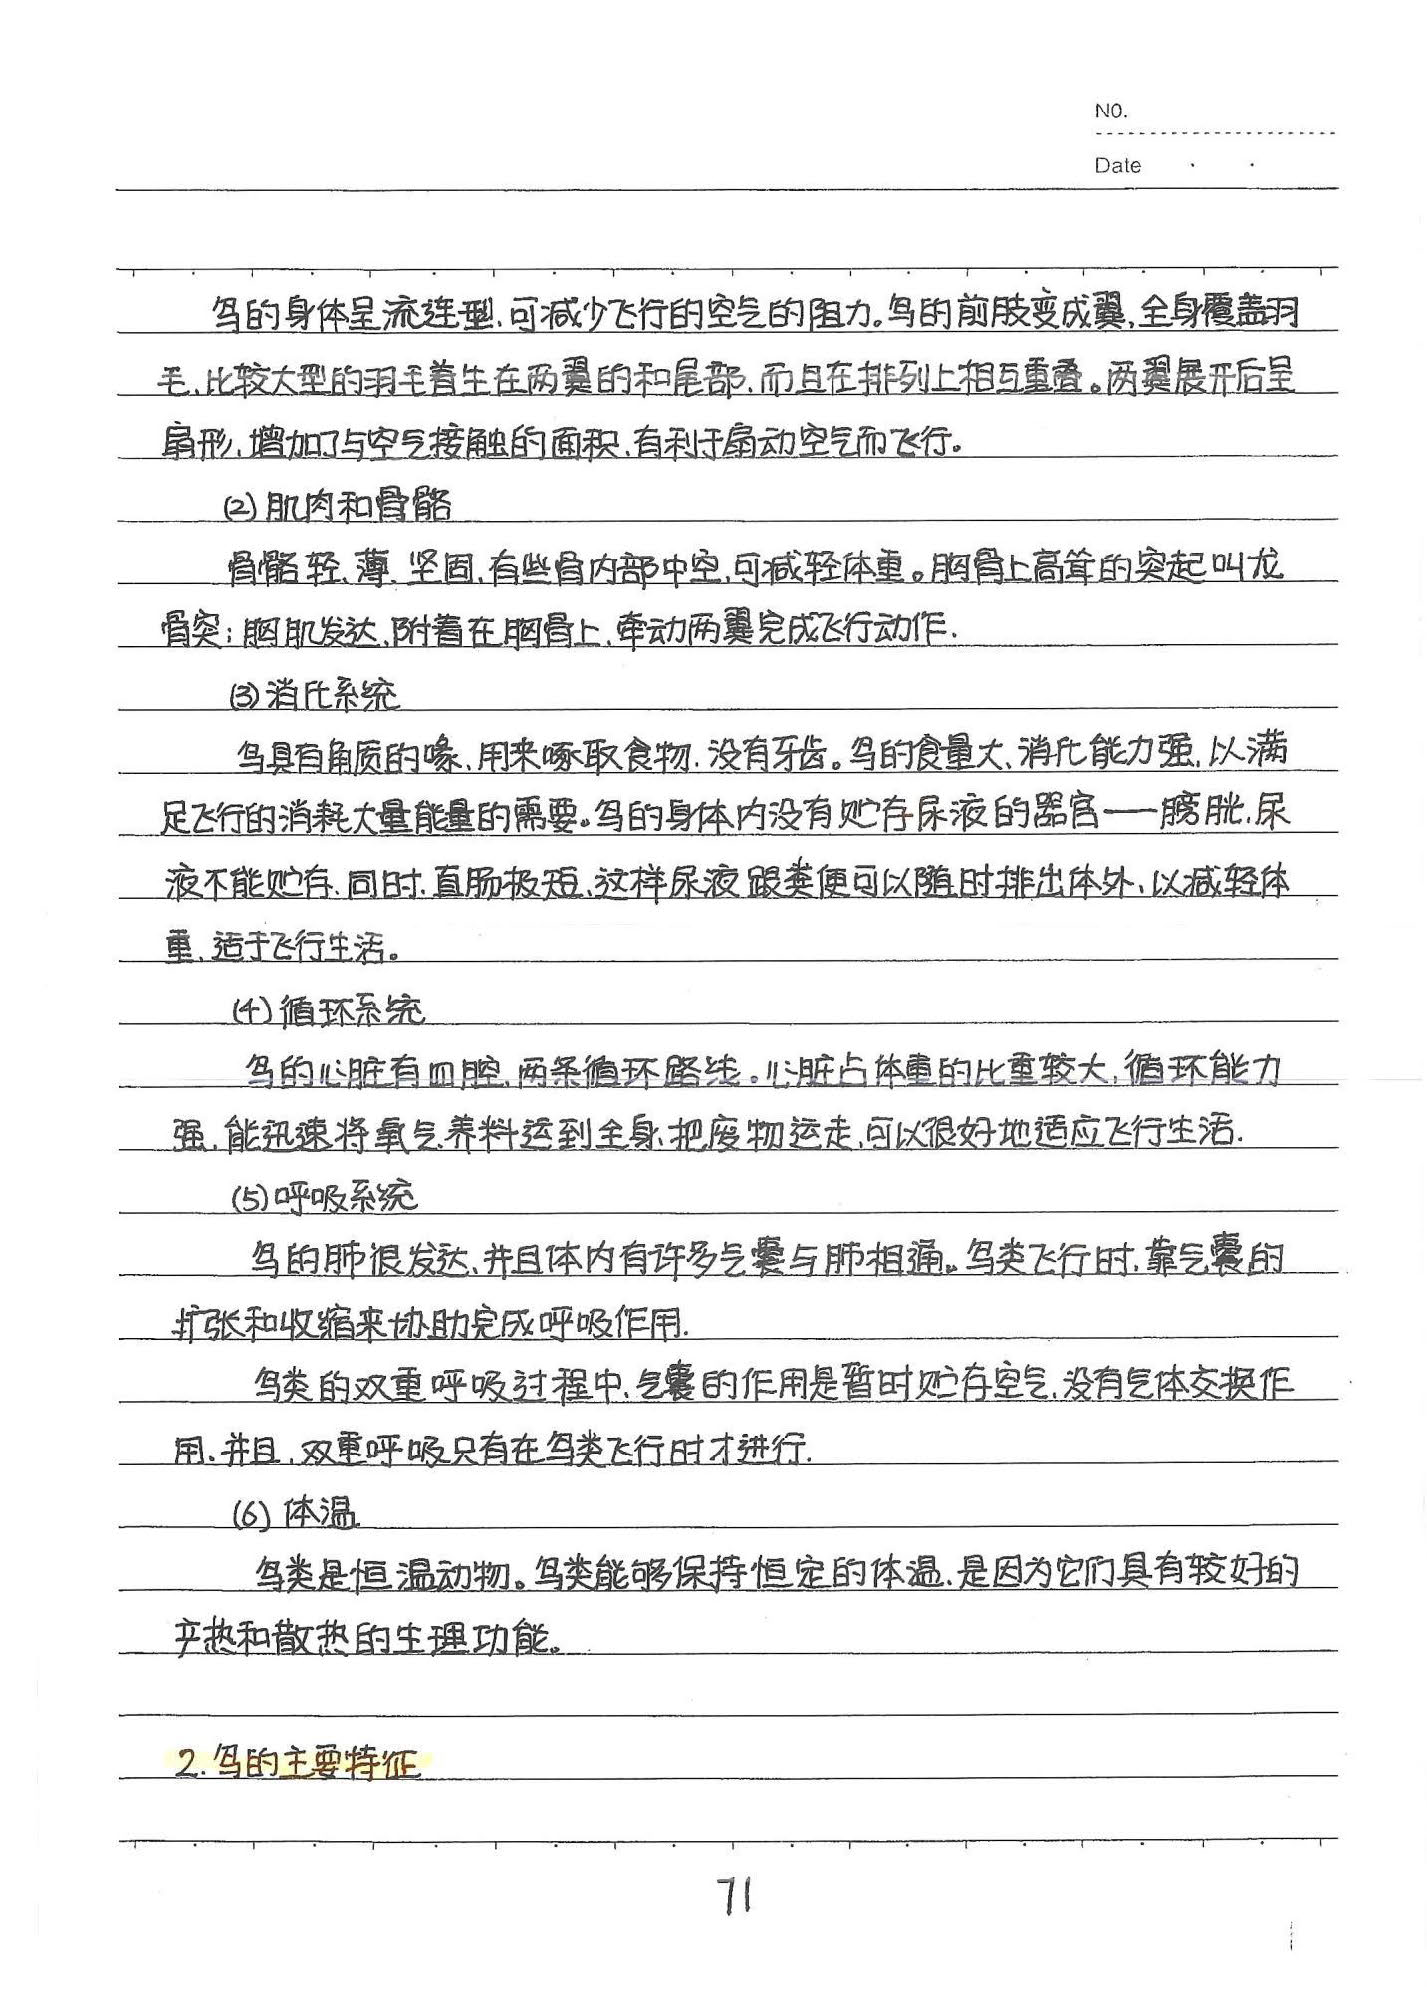 NO.
Date
鸟的身体呈流连型,可减少飞行的空气的阻力。鸟的前肢变成翼,全身覆盖羽
毛,比较大型的羽毛着生在两翼的和尾部,而且在排列上相互重叠。两翼展开后呈
扇形,增加了与空气接触的面积,有利于扇动空气而飞行。
(2)肌肉和骨骼
骨骼轻、薄、坚固,有些骨内部中空,可减轻体重。胸骨上高耸的突起叫龙
骨突;胸肌发达,附着在胸骨上,牵动两翼完成飞行动作.
(3)消化系统
鸟具有角质的喙,用来啄取食物,没有牙齿。鸟的食量大,消化能力强,以满
足飞行的消耗大量能量的需要。鸟的身体内没有贮存尿液的器官——膀胱,尿
液不能贮存,同时,直肠极短,这样尿液跟粪便可以随时排出体外,以减轻体
重,适于飞行生活。
(4)循环系统
鸟的心脏有四腔,两条循环路线。心脏占体重的比重较大,循环能力
强,能迅速将氧气养料运到全身,把废物运走,可以很好地适应飞行生活.
(5)呼吸系统
鸟的肺很发达,并且体内有许多气囊与肺相通。鸟类飞行时,靠气囊的
扩张和收缩来协助完成呼吸作用.
鸟类的双重呼吸过程中,气囊的作用是暂时贮存空气,没有气体交换作
用,并且,双重呼吸只有在鸟类飞行时才进行.
(6)体温
鸟类是恒温动物。鸟类能够保持恒定的体温,是因为它们具有较好的
产热和散热的生理功能。
2.鸟的主要特征
71